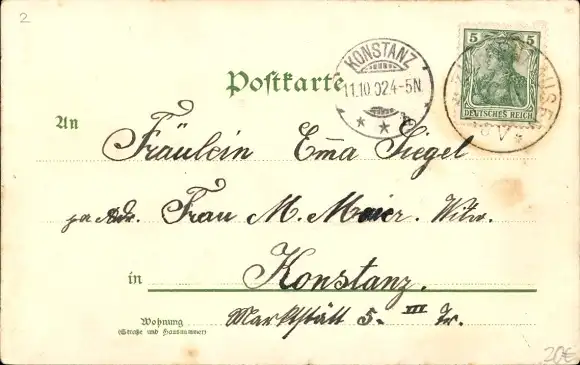 2
5
DEUTSCHES REICH
KONSTANZ
11.10.02 4-5N
Postkarte
An
Fräulein Ema Siegel
pa Adr. Frau M. Maier. Witw.
in Konstanz.
Wohnung
(Straße und Hausnummer)
Marktstätt 5. III Tr.
20€